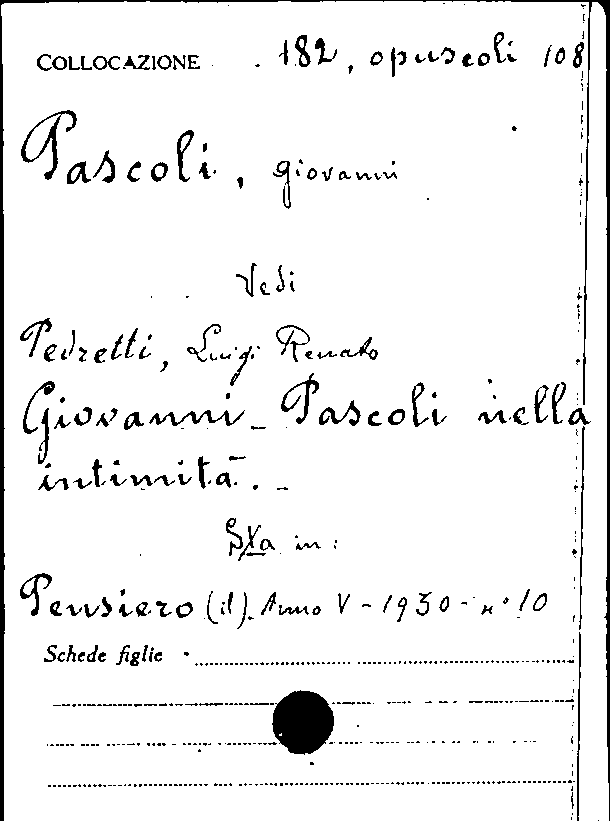 COLLOCAZIONE . 182, opuscoli 108
Pascoli, Giovanni
Vedi
Pedretti, Luigi Renato
Giovanni - Pascoli nella
intimità. -
in:
Pensiero (il). Anno V - 1930 - n° 10
Schede figlie -